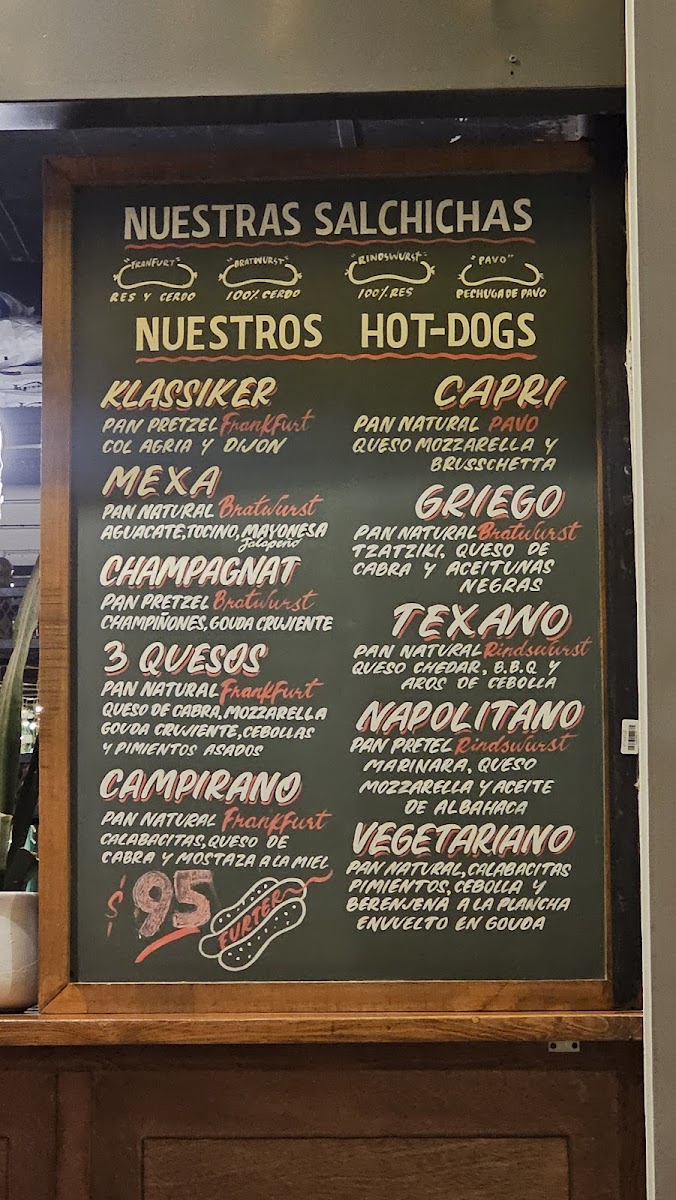 NUESTRAS SALCHICHAS
"FRANFURT" "BRATWURST" "RINDSWURST" "PAVO"
RES Y CERDO 100% CERDO 100% RES PECHUGA DE PAVO
NUESTROS HOT-DOGS
KLASSIKER
PAN PRETZEL FrankFurt
COL AGRIA Y DIJON
MEXA
PAN NATURAL Bratwurst
AGUACATE, TOCINO, MAYONESA
Jalapeño
CHAMPAGNAT
PAN PRETZEL Bratwurst
CHAMPIÑONES, GOUDA CRUJIENTE
3 QUESOS
PAN NATURAL FrankFurt
QUESO DE CABRA, MOZZARELLA
GOUDA CRUJIENTE, CEBOLLAS
Y PIMIENTOS ASADOS
CAMPIRANO
PAN NATURAL FrankFurt
CALABACITAS, QUESO DE
CABRA Y MOSTAZA A LA MIEL
$95
FURTER
CAPRI
PAN NATURAL PAVO
QUESO MOZZARELLA Y
BRUSSCHETTA
GRIEGO
PAN NATURAL Bratwurst
TZATZIKI, QUESO DE
CABRA Y ACEITUNAS
NEGRAS
TEXANO
PAN NATURAL Rindswurst
QUESO CHEDAR, B.B.Q Y
AROS DE CEBOLLA
NAPOLITANO
PAN PRETEL Rindswurst
MARINARA, QUESO
MOZZARELLA Y ACEITE
DE ALBAHACA
VEGETARIANO
PAN NATURAL, CALABACITAS
PIMIENTOS, CEBOLLA Y
BERENJENA A LA PLANCHA
ENVUELTO EN GOUDA